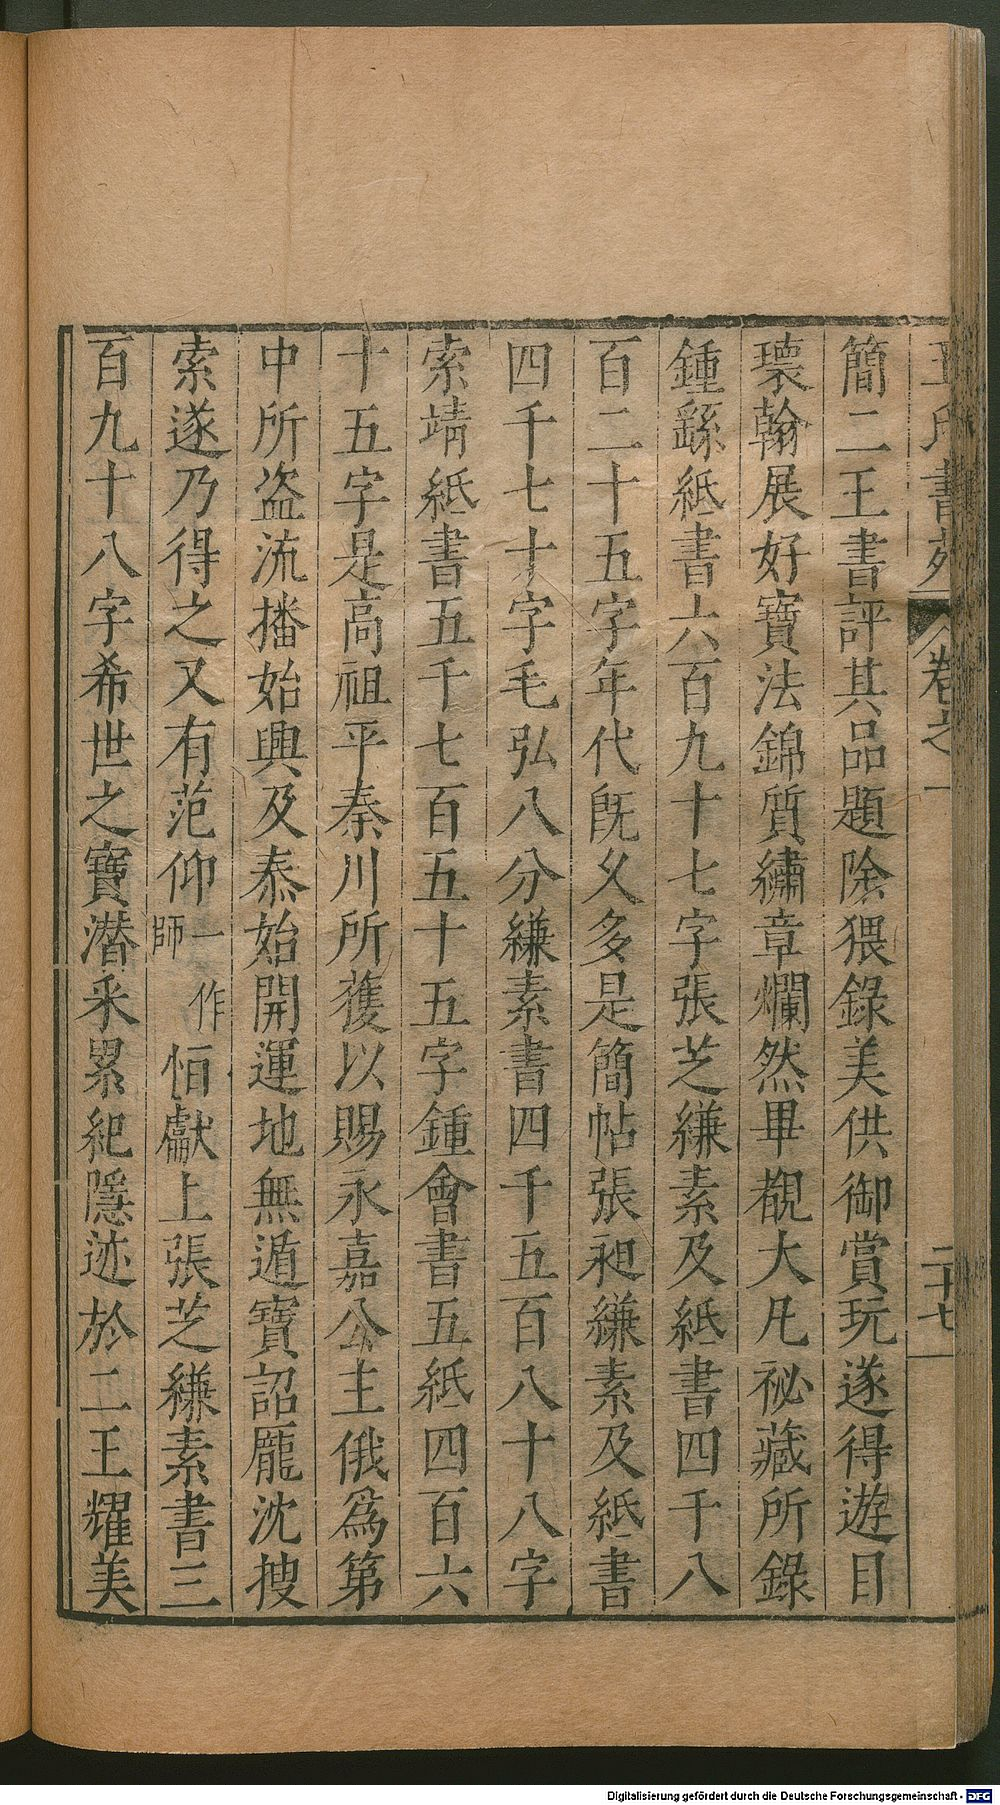 王氏書苑 卷之一 二十七
簡二王書評其品題除猥錄美供御賞玩遂得遊目
瓌翰展好寶法錦質繡章爛然畢覩大凡祕藏所錄
鍾繇紙書六百九十七字張芝縑素及紙書四千八
百二十五字年代旣久多是簡帖張昶縑素及紙書
四千七十字毛弘八分縑素書四千五百八十八字
索靖紙書五千七百五十五字鍾會書五紙四百六
十五字是高祖平秦川所獲以賜永嘉公主俄爲第
中所盜流播始興及泰始開運地無遁寶詔龐沈搜
索遂乃得之又有范仰一作師恒獻上張芝縑素書三
百九十八字希世之寶潛采累紀隱迹於二王耀美
Digitalisierung gefördert durch die Deutsche Forschungsgemeinschaft - DFG